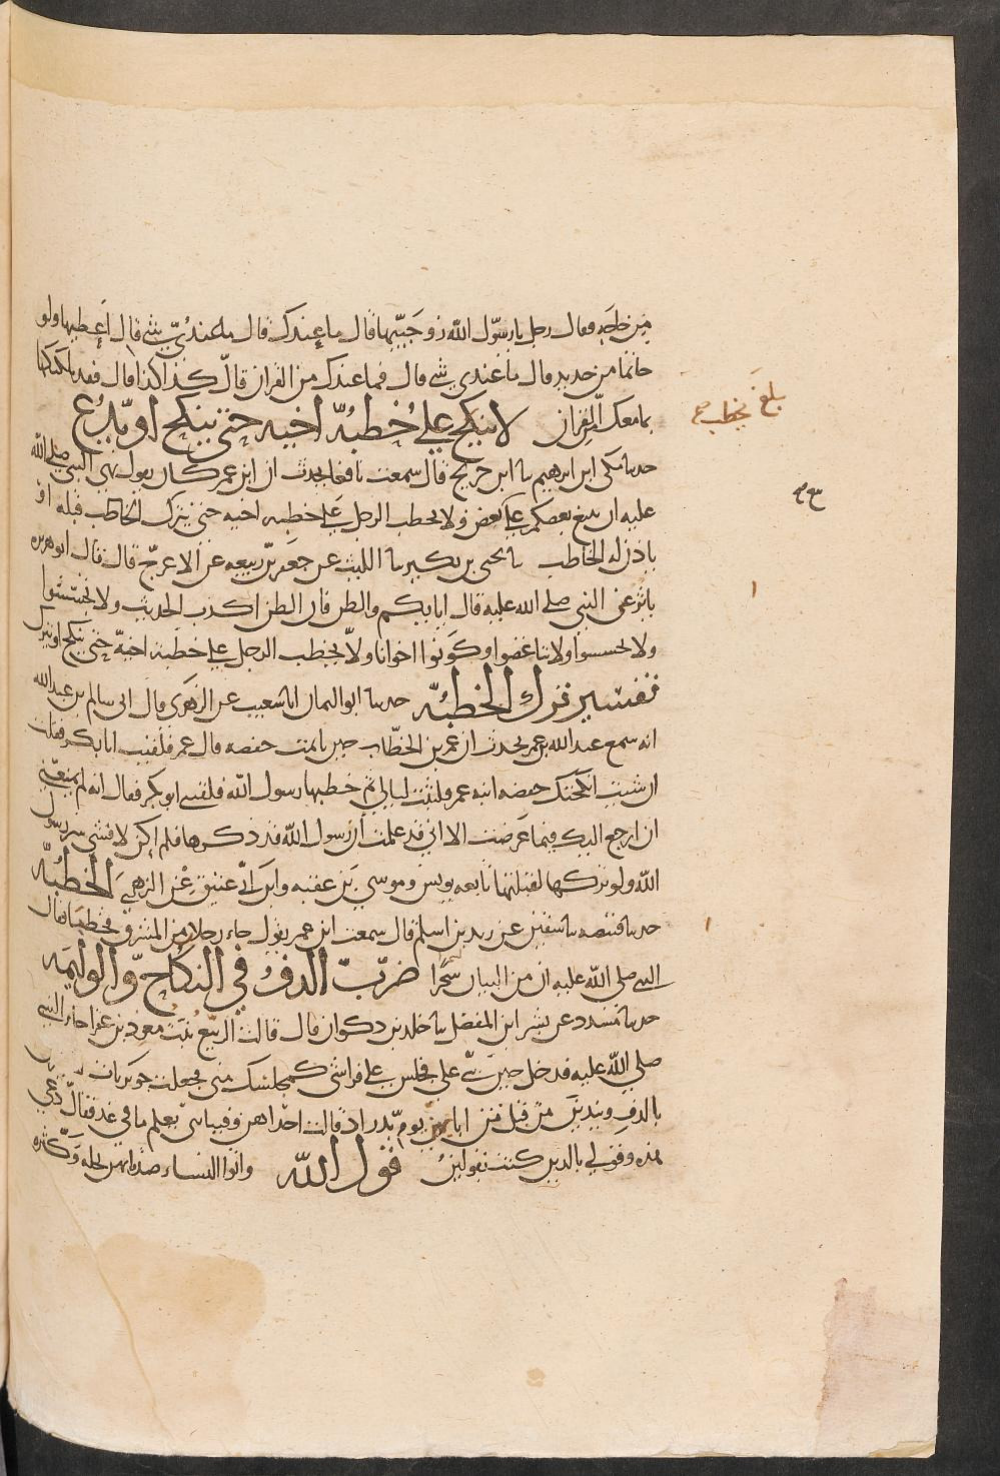 من حاجه فقال رجل يا رسول الله زوجنيها قال ما عندك قال ما عندي شي قال أعطها ولو
خاتما من حديد قال ما عندي شي قال فما عندك من القران قال كذا كذا قال فقد ملكتكها
بما معك من القران لا ينكح على خطبة اخيه حتى ينكح او يدع
حدثنا مكي ابن ابرهيم نا ابن جريج قال سمعت نافعا يحدث ان ابن عمر كان يقول نهى النبي صلى الله
عليه ان يبيع بعضكم على بعض ولا يخطب الرجل على خطبه اخيه حتى يترك الخاطب قبله او
ياذن له الخاطب نا يحيى بن بكير نا الليث عن جعفر بن ربيعه عن الاعرج قال قال ابو هريره
ياثر عن النبي صلى الله عليه قال اياكم والظن فان الظن اكذب الحديث ولا تجسسوا
ولا تحسسوا ولا تباغضوا وكونوا اخوانا ولا يخطب الرجل على خطبة اخيه حتى ينكح او يترك
تفسير ترك الخطبة حدثنا ابو اليمان انا شعيب عن الزهري قال اني سالم بن عبد الله
انه سمع عبد الله بن عمر يحدث ان عمر بن الخطاب حين تايمت حفصه قال عمر فلقيت ابا بكر فقلت
ان شيت انكحتك حفصه ابنه عمر فلبثت ليالي ثم خطبها رسول الله فلقيني ابو بكر فقال انه لم يمنعني
ان ارجع اليك فيما عرضت الا اني قد علمت ان رسول الله قد ذكرها فلم اكن لافشي سر رسول
الله ولو تركها لقبلتها تابعه يونس وموسى بن عقبه وابن ابي عتيق عن الزهري الخطبة
حدثنا قبيصه نا سفين عن زيد بن اسلم قال سمعت ابن عمر يقول جاء رجلان من المشرق فخطبا فقال
النبي صلى الله عليه ان من البيان سحرا ضرب الدف في النكاح والوليمه
حدثنا مسدد عن بشر ابن المفضل نا خلد بن ذكوان قال قالت الربيع بنت معوذ بن عفرا جاء النبي
صلى الله عليه فدخل حين بني علي فجلس على فراشي كمجلسك مني فجعلت جويريات
بالدف ويندبن من قتل من اباي يوم بدر اذ قالت احداهن وفينا نبي يعلم ما في غد فقال دعي
هذه وقولي بالذي كنت تقولين قول الله واتوا النساء صدقاتهن نحله وكثره
بلغ